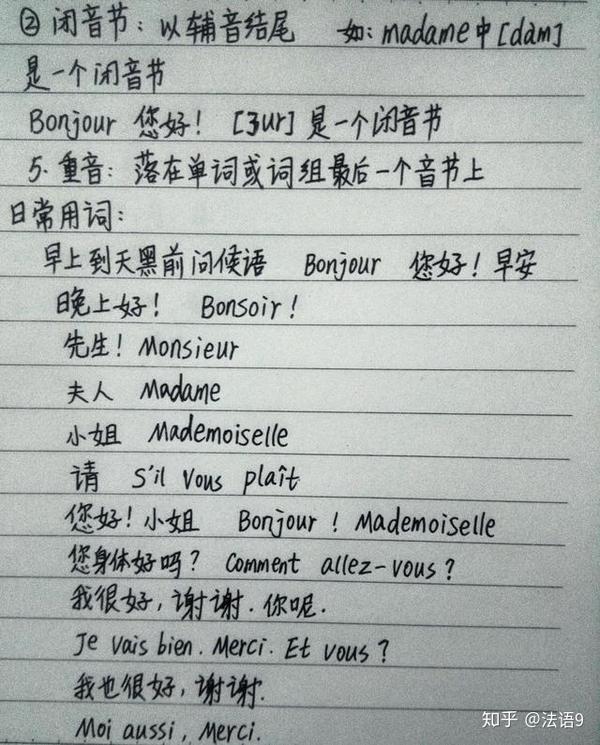 ② 闭音节：以辅音结尾 如：madame中[dàm]
是一个闭音节
Bonjour 您好！ [ʒur] 是一个闭音节
5. 重音：落在单词或词组最后一个音节上
日常用词：
早上到天黑前问候语 Bonjour 您好！早安
晚上好！ Bonsoir！
先生！Monsieur
夫人 Madame
小姐 Mademoiselle
请 S'il vous plaît
您好！小姐 Bonjour！Mademoiselle
您身体好吗？ Comment allez-vous？
我很好，谢谢．你呢．
Je vais bien. Merci. Et vous？
我也很好，谢谢．
Moi aussi, Merci.
知乎 @法语9